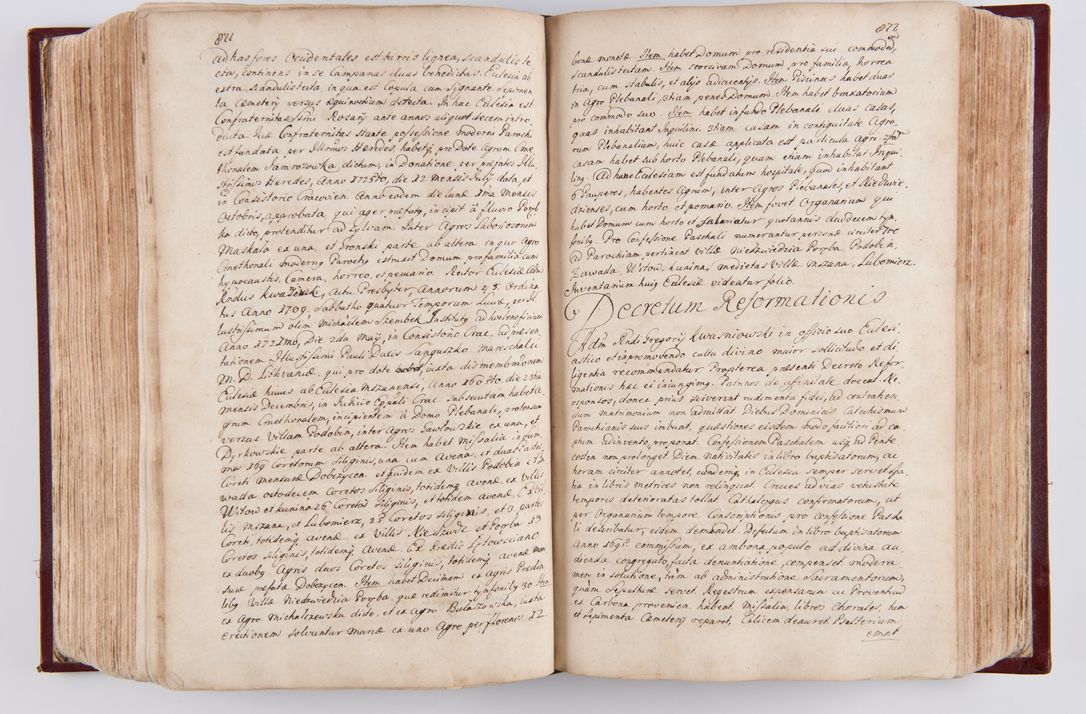 871
ad has fores Occidentales est turris lignea, scandulis te
cta, continens in se Campanas duas benedictas. Ecclesia ab
extra scandulis tecta, in qua est Copula cum Signante. Sepimen
ta Cæmeterij versus æquinoctium detecta. In hac Ecclesia est
Confraternitas SSmi Rosarij ante annos aliquot decem intro
ducta. Quæ Confraternitas stante possessione moderni Parochi
est fundata per Illrmos Heredes, habetq; pro Dote Agrum Cme
thonalem Jamrozowka dictum, in Donatione per præfatos Illu
strissimos Heredes, Anno 1725to, die 12 Mensis Julij data, et
in Consistorio Cracovien. Anno eodem die lunæ 1ma Mensis
Octobris, approbata, qui ager præfatg, incipit à fluvio Poręb
ka dicto, protenditur ad sylvam. Inter Agros laboriosorum
Maskala ex una, et Wronski parte ab altera in quo Agro
Cmethonali modernq Parochq extruxit Domum pro familia cum
hypocaustis, Camera, horreo, et pecuario. Rector Ecclesiæ Adm
Rndus Kwaśniowski, actu Presbyter, Annorum 48. Ordina
tus Anno 1709. Sabbatho quatuor Temporum Luciæ, per Il
lustrissimum olim Michaelem Szembek. Institutg ad hoc beneficium
Anno 1721mo, Die 2da Maij, in Consistorio Crac. ad præsen
tationem Illustrissimi Pauli Ducis Sanguszko Mareschalci
M. D. Lithvaniæ, qui pro dote habet, iuxta dismembrationem
Ecclesiæ huius ab Ecclesia Mszanensi, Anno 1605to. die 23tia
Mensis Decembris, in Judicio Epīali Crac. subsecutam habet a
grum Cmethonalem, incipientem à Domo Plebanali, protensum
versus Villam Podobin, inter Agros Sawłowskie ex una, et
Dyrkowskie parte ab altera. Item habet Missalia in sum
ma 109 Coretorum siliginis, una cum Avena, et duas ades
Coreti mensuræ Dobczycen. et quidem ex Villis Podobin et Za
wada octodecem Coretos siliginis, totidemq avenæ, ex Villis
Witow et Kunina 26 Coretos siliginis, et totidem avenæ, Ex Vil
lis Mszana, et Lubomierz, 25 Coretos siliginis, et 3 partes
Coreti, totidemq avenæ ex Villis Niedzwiedz et Poręba 13
Coretos siliginis, totidemq Avenæ. Ex Prædio Łętowsciano
ex duobg Agris duos Coretos siliginis, totidemq avenæ men
suræ præfatæ Dobczycen. Item habet Decimam ex Agris Prædia
libg Villæ Niedzwiedzia Poręba, quæ redimitur tynfonibg 30. Item
ex Agro Michalczewska dicto, et ex Agro Bulaszowska, iuxta
erectionem solvuntur Marcæ ex uno Agro per florenos 12
872
bonæ monetæ. Item habet Domum pro residentia sui commodam,
scandulis tectam. Item seorsivam Domum pro familia, horrea
tria, cum stabulis, et alijs adiacentijs. Item Piscinas habet duas
in Agro Plebanali, etiam penes Domum. Item habet braxatorium
pro commodo suo. Item habet in fundo Plebanali duas casas,
quas inhabitant Inquilini. etiam casam in contiguitate Agro
rum Plebanalium, huic casæ applicata est particula agri. 4tam
casam habet sub horto Plebanali, quam etiam inhabitat Inqui
ling. Ad hanc Ecclesiam est fundatum hospitale, quod inhabitant
6 Pauperes, habentes Agrum, inter Agros Plebanales, et Niedzwie
dzienses, cum horto et pomario. Item fovet Organarium qui
habet Domum cum horto et salariatur quotannis duodecem tyn
fonibg. Pro Confessione Paschali numerantur personæ circiter 700
Ad Parochiam pertinent villæ Niedzwiedzia Poręba, Podobin,
Zawada, Witow, Kunina, medietas Villæ Mszana, Lubomierz.
Inventarium huig Ecclesiæ videatur folio.
Decretum Reformationis
Adm Rndi Gregorij Kwasniowski in officio suo Ecclesi
astico et in promovendo cultu divino maior sollicitudo et di
ligentia recommendatur. Propterea præsenti Decreto Refor
mationis hæc ei iniungimg. Patrinos de affinitate doceat. Ne
sponsos, donec prius sciverint rudimenta fidei, ad contrahen
dum matrimonium non admittat. Diebus Dominicis Catechismum
Parochianis suis imbuat, quæstiones eisdem modo faciliori ad ca
ptum adinvento, proponat. Confessionem Paschalem usq ad Pente
costen non prolonget. Diem Nativitatis in libro baptisatorum, ac
horam circiter annotet, eundemq, in Ecclesia semper servet. Spa
tia in libris metrices non relinquat. Cruces ad vias vetustate
temporis deterioratas tollat. Cathalogus confirmatorum, ut
per Organarium tempore Conscriptionis pro Confessione Pascha
li describatur, eidem demandet. Defectum in libro baptisatorum
Anno 1698. commissum, ex ambona populo ad divina au
dienda congregato, facta denuntiatione, compenset modera
men in solutione, tàm ab administratione Sacramentorum,
quàm sepulturæ servet. Regestrum expensarum ac Proventuū
ex Carbona provenien. habeat. Missalia, libros Chorales, tum
et sepimenta Cæmeterij reparet, Calicem deauret. Psalterium
emat